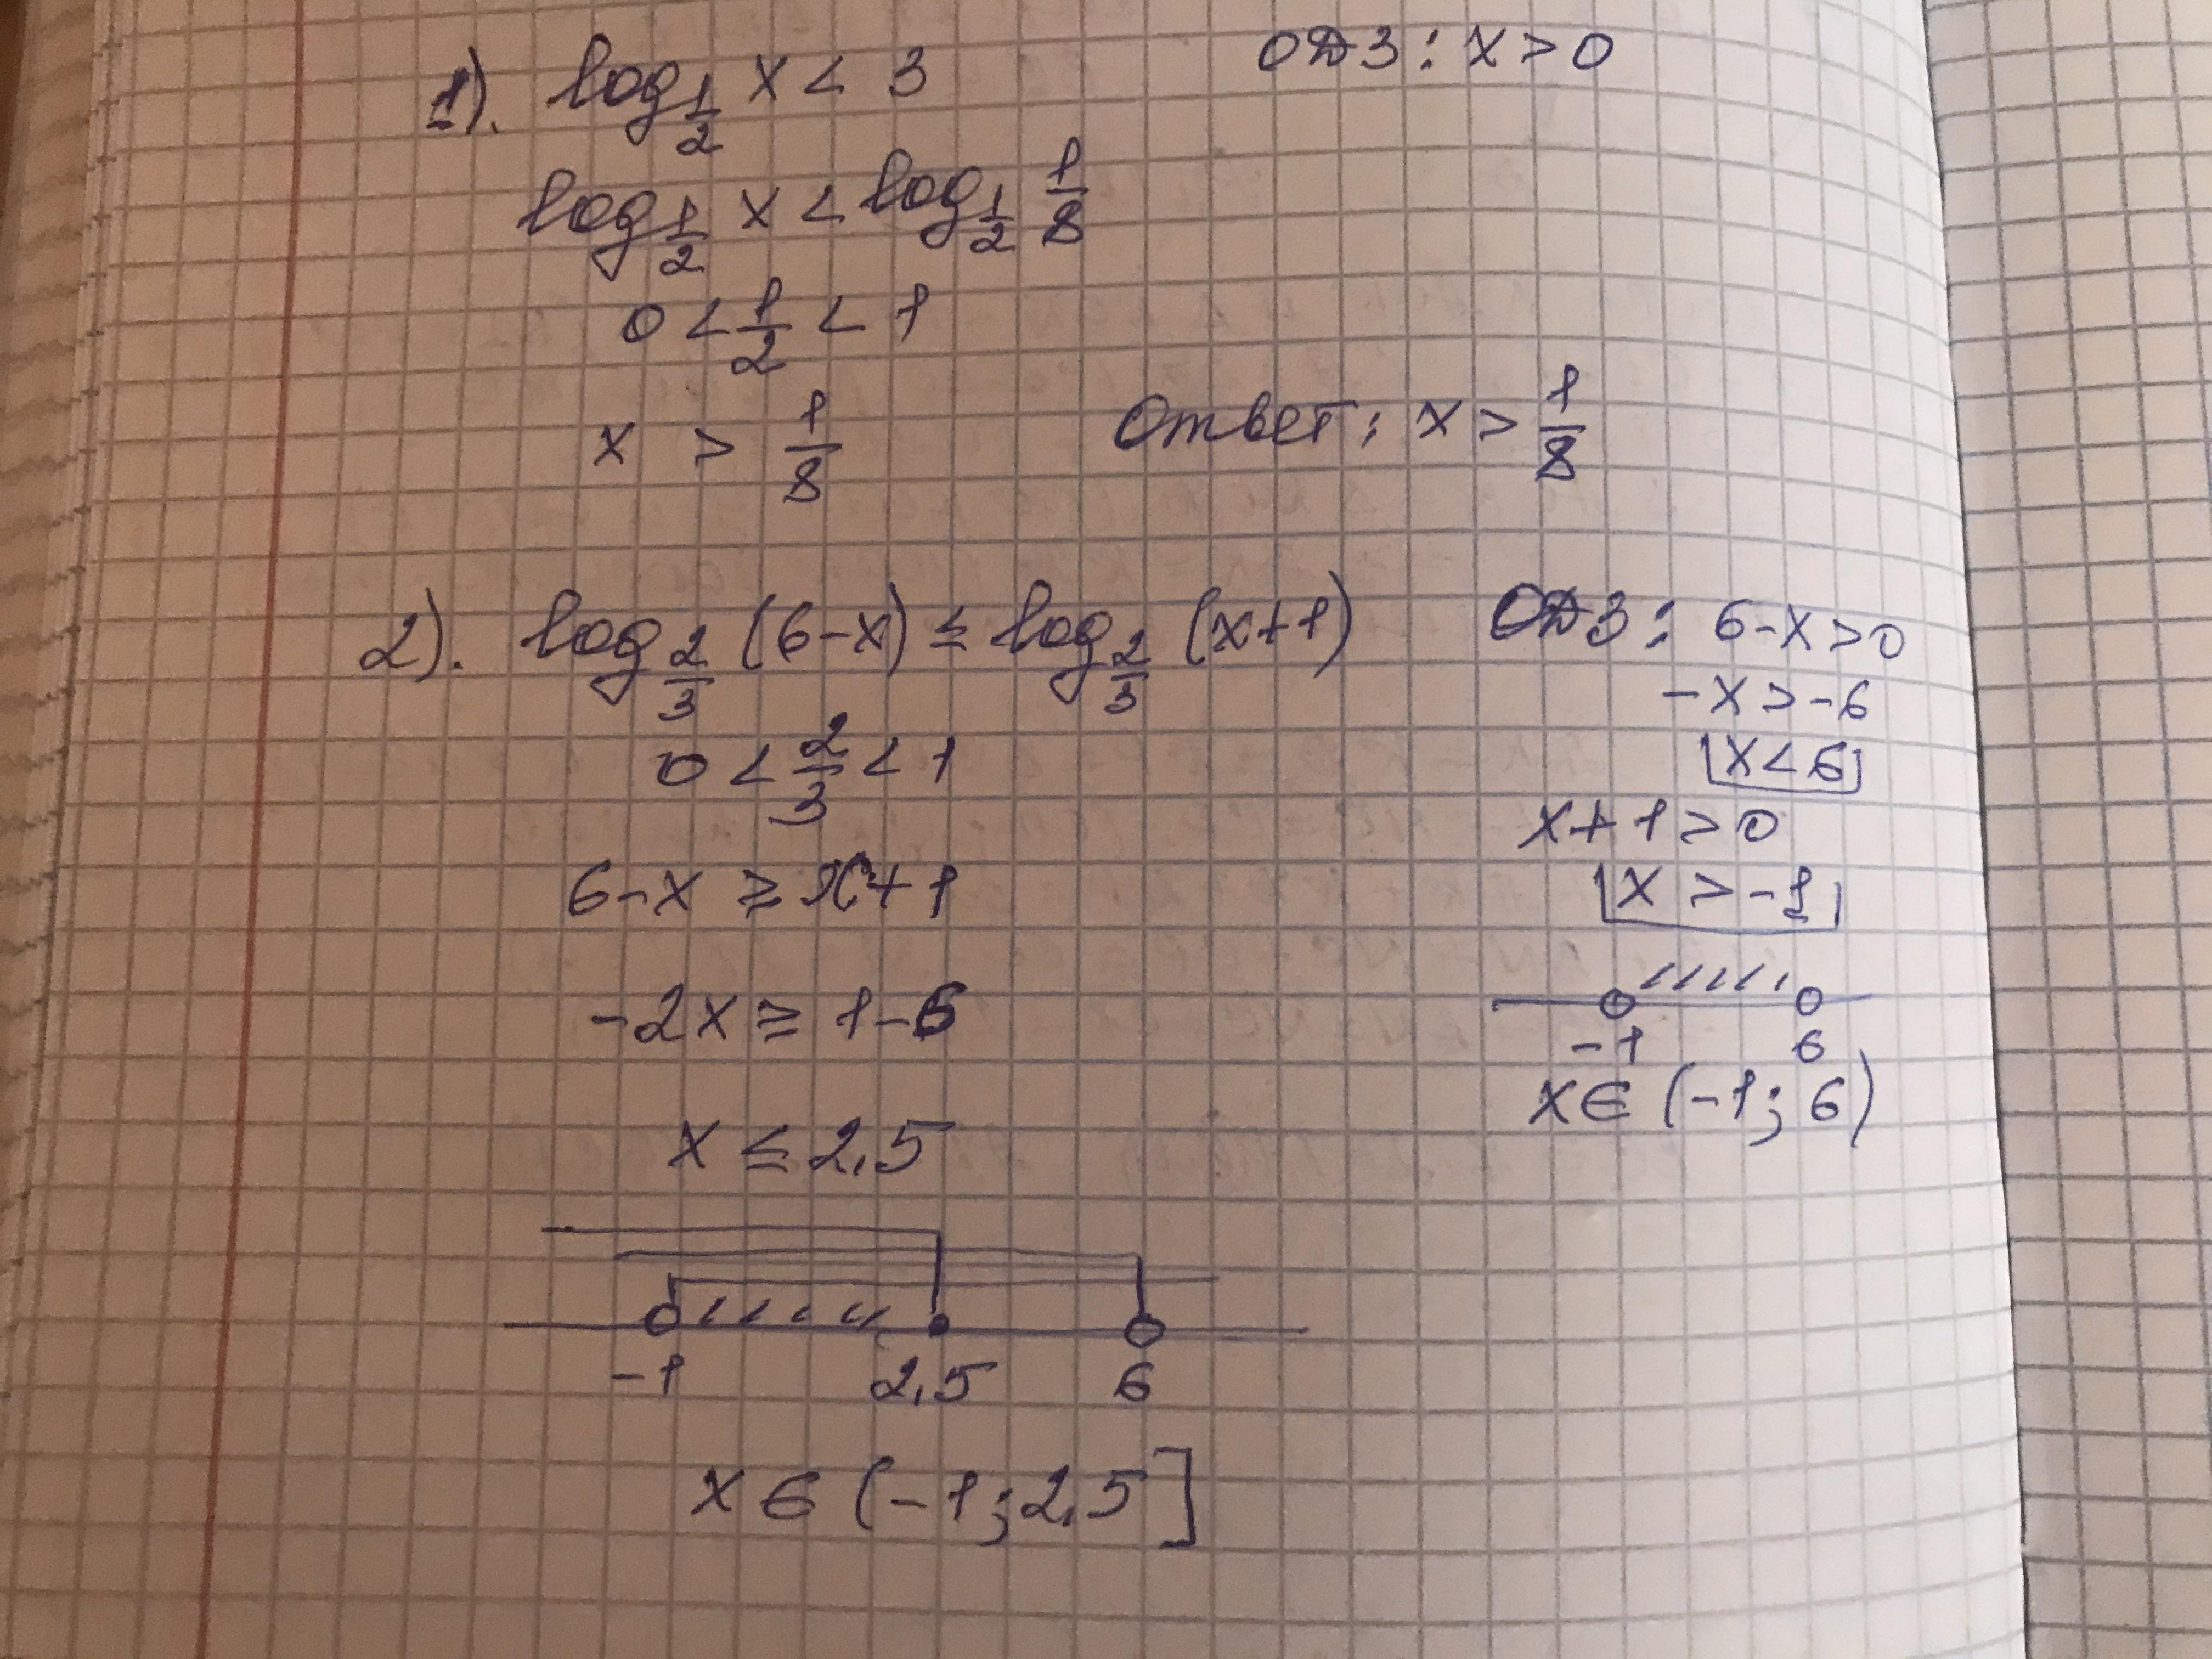 1). log_{1/2} x < 3
ОДЗ: x > 0
log_{1/2} x < log_{1/2} 1/8
0 < 1/2 < 1
x > 1/8
Ответ: x > 1/8
2). log_{2/3} (6-x) ≤ log_{2/3} (x+1)
ОДЗ: 6-x>0
-x>-6
x<6
x+1>0
x>-1
-1 6
x∈(-1; 6)
0 < 2/3 < 1
6-x ≥ x+1
-2x ≥ 1-6
x ≤ 2,5
-1 2,5 6
x∈(-1; 2,5]